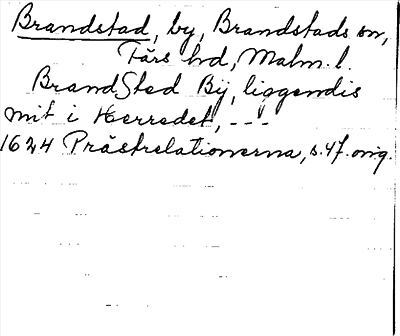 Brandstad, by, Brandstads sn,
Färs hd, Malm. l.
Brand Sted Bÿ, liggendis
mit i Herredet, ---
1624 Prästrelationerna, s. 47. orig.